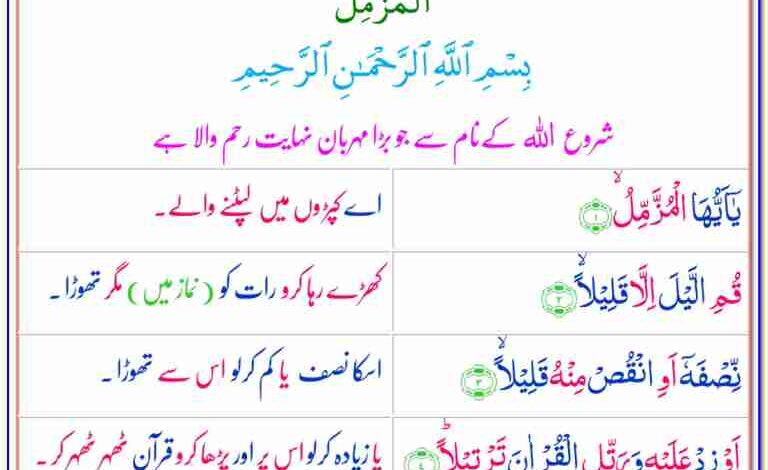 المزمل
بِسْمِ ٱللَّهِ ٱلرَّحْمَـٰنِ ٱلرَّحِيمِ
شروع اللہ کے نام سے جو بڑا مہربان نہایت رحم والا ہے
يٰٓاَيُّهَا الْمُزَّمِّلُۙ ﴿۱﴾ اے کپڑوں میں لپٹنے والے۔
قُمِ الَّيْلَ اِلَّا قَلِيْلًاۙ ﴿۲﴾ کھڑے رہا کرو رات کو (نماز میں) مگر تھوڑا۔
نِّصْفَهٗۤ اَوِ انْقُصْ مِنْهُ قَلِيْلًاۙ ﴿۳﴾ اسکا نصف یا کم کرلو اس سے تھوڑا۔
اَوْ زِدْ عَلَيْهِ وَرَتِّلِ الْقُرْاٰنَ تَرْتِيْلًاؕ ﴿۴﴾ یا زیادہ کرلو اس پر اور پڑھا کرو قرآن ٹھہر ٹھہر کر۔